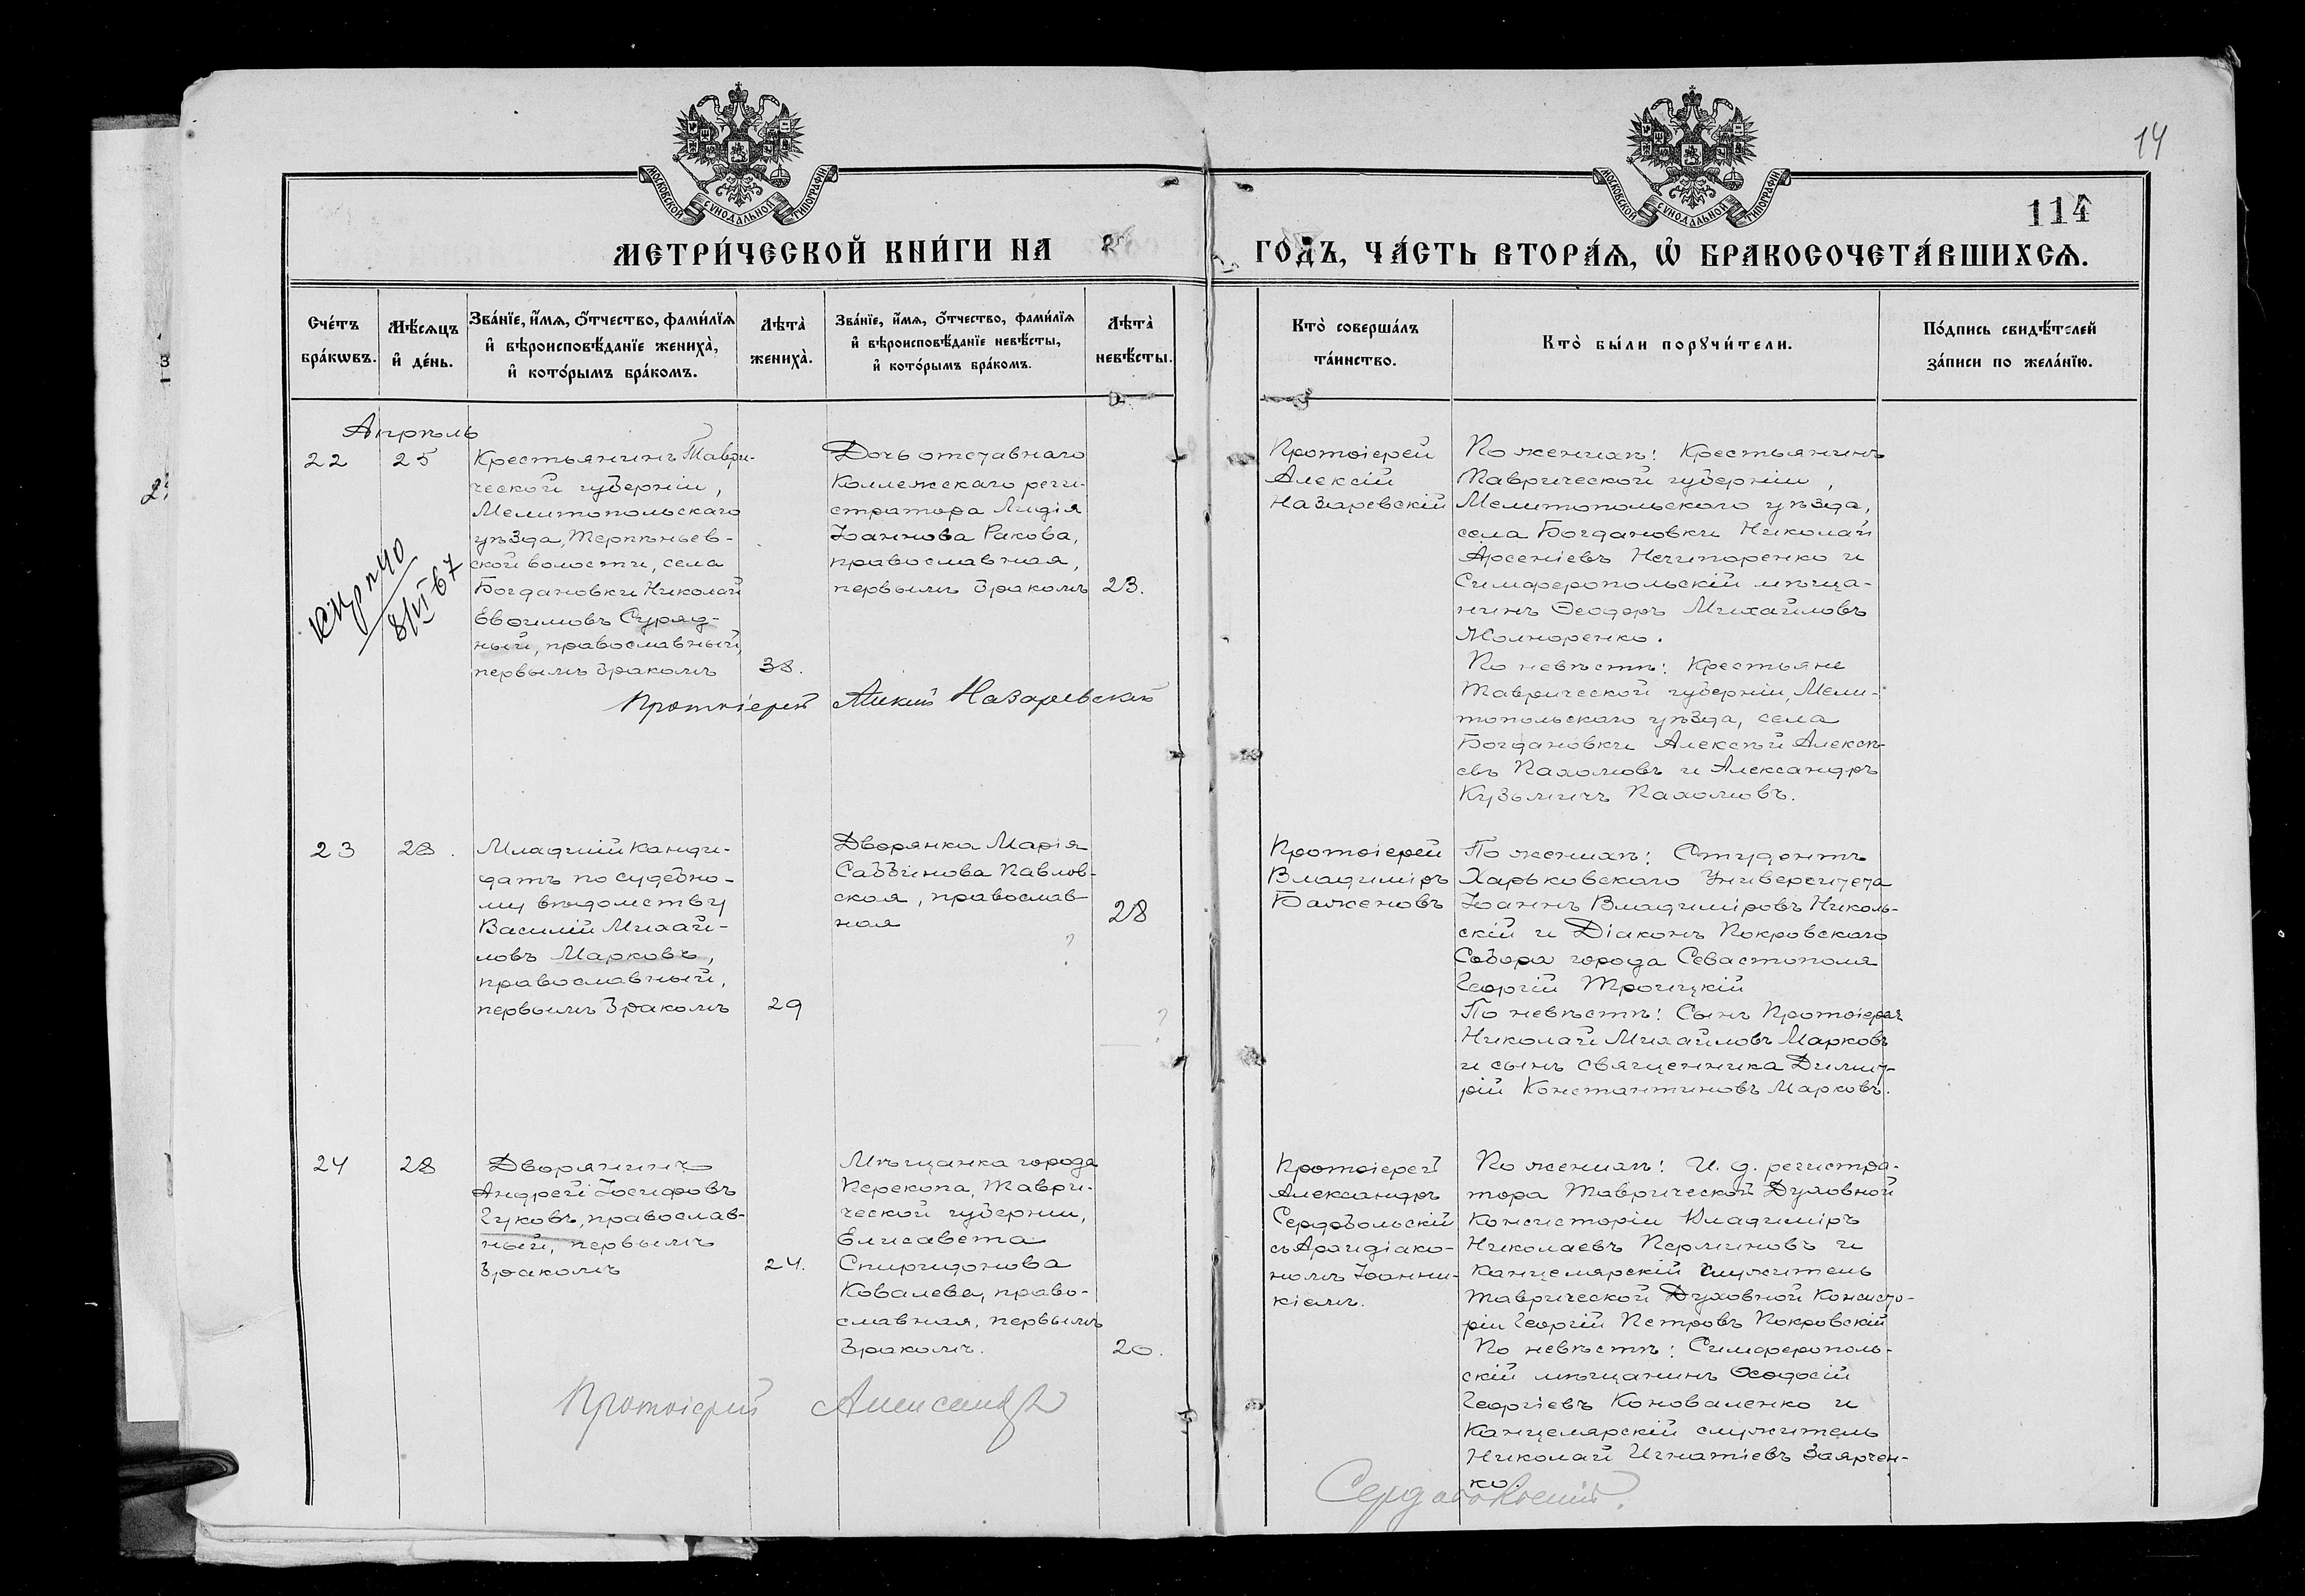 14
114
МОСКОВСКОЙ СѴНОДАЛЬНОЙ ТИПОГРАФІИ
МОСКОВСКОЙ СѴНОДАЛЬНОЙ ТИПОГРАФІИ
МЕТРИ́ЧЕСКОЙ КНИ́ГИ НА
ГО́ДЪ, ЧА́СТЬ ВТОРА́Ѧ, Ѡ҆ БРАКОСОЧЕТА́ВШИХСѦ.
Сче́тъ
бра́кѡвъ.
Мѣ́сѧцъ
и҆ де́нь.
Зва́нїе, и҆́мѧ, ѻ҆́тчество, фами́лїѧ
и҆ вѣроисповѣ́данїе жениха̀,
и҆ кото́рымъ бра́комъ.
Лѣта̀
жениха̀.
Зва́нїе, и҆́мѧ, ѻ҆́тчество, фами́лїѧ
и҆ вѣроисповѣ́данїе невѣ́сты,
и҆ кото́рымъ бра́комъ.
Лѣта̀
невѣ́сты.
Кто̀ соверша́лъ
та́инство.
Кто̀ бы́ли порꙋчи́тели.
По́дпись свидѣ́телей
за́писи по жела́нїю.
Апрѣль
22
25
Крестьянинъ Таври-
ческой губерніи,
Мелитопольскаго
уѣзда, Терпѣньев-
ской волости, села
Богдановки Николай
Евѳимовъ Суряд-
ный, православный,
первымъ бракомъ
38.
Дочь отставнаго
Коллежскаго реги-
стратора Лидія
Іоаннова Ракова,
православная,
первымъ бракомъ
23.
8/VI-67
Протоіерей
Алексій
Назаревскій
По женихѣ: Крестьянинъ
Таврической губерніи,
Мелитопольскаго уѣзда,
села Богдановки Николай
Арсеніевъ Нечипоренко и
Симферопольскій мѣща-
нинъ Ѳеодоръ Михайловъ
Жолноренко.
По невѣстѣ: Крестьяне
Таврической губерніи, Мели-
топольскаго уѣзда, села
Богдановки Алексѣй Алексѣ-
евъ Пахомовъ и Александръ
Кузьмичъ Пахомовъ.
Протоіерей Алексій Назаревскій
23
28.
Младшій Канди-
датъ по судебно-
му вѣдомству
Василій Михай-
ловъ Марковъ,
православный,
первымъ бракомъ
29
Дворянка Марія
Саввинова Павлов-
ская, православ-
ная
28
?
?
Протоіерей
Владиміръ
Баженовъ
По женихѣ: Студентъ
Харьковскаго Университета
Іоаннъ Владиміровъ Николь-
скій и Діаконъ Покровскаго
Собора города Севастополя
Георгій Троицкій
По невѣстѣ: Сынъ Протоіерея
Николай Михайловъ Марковъ
и сынъ священника Димит-
рій Константиновъ Марковъ.
24
28
Дворянинъ
Андрей Іосифовъ
Гуковъ, православ-
ный, первымъ
бракомъ
24.
Мѣщанка города
Перекопа, Таври-
ческой губерніи,
Елисавета
Спиридонова
Ковалева, право-
славная, первымъ
бракомъ.
20.
Протоіерей
Александръ
Сердобольскій
съ Архидіако-
номъ Іоанни-
кіемъ.
По женихѣ: И. д. регистра-
тора Таврической Духовной
Консисторіи Владиміръ
Николаевъ Перминовъ и
Канцелярскій служитель
Таврической Духовной Консисто-
ріи Георгій Петровъ Покровскій
По невѣстѣ: Симферополь-
скій мѣщанинъ Ѳеодосій
Георгіевъ Коноваленко и
Канцелярскій служитель
Николай Игнатіевъ Заярчен-
ко.
Протоіерей Александръ
Сердобольскій.